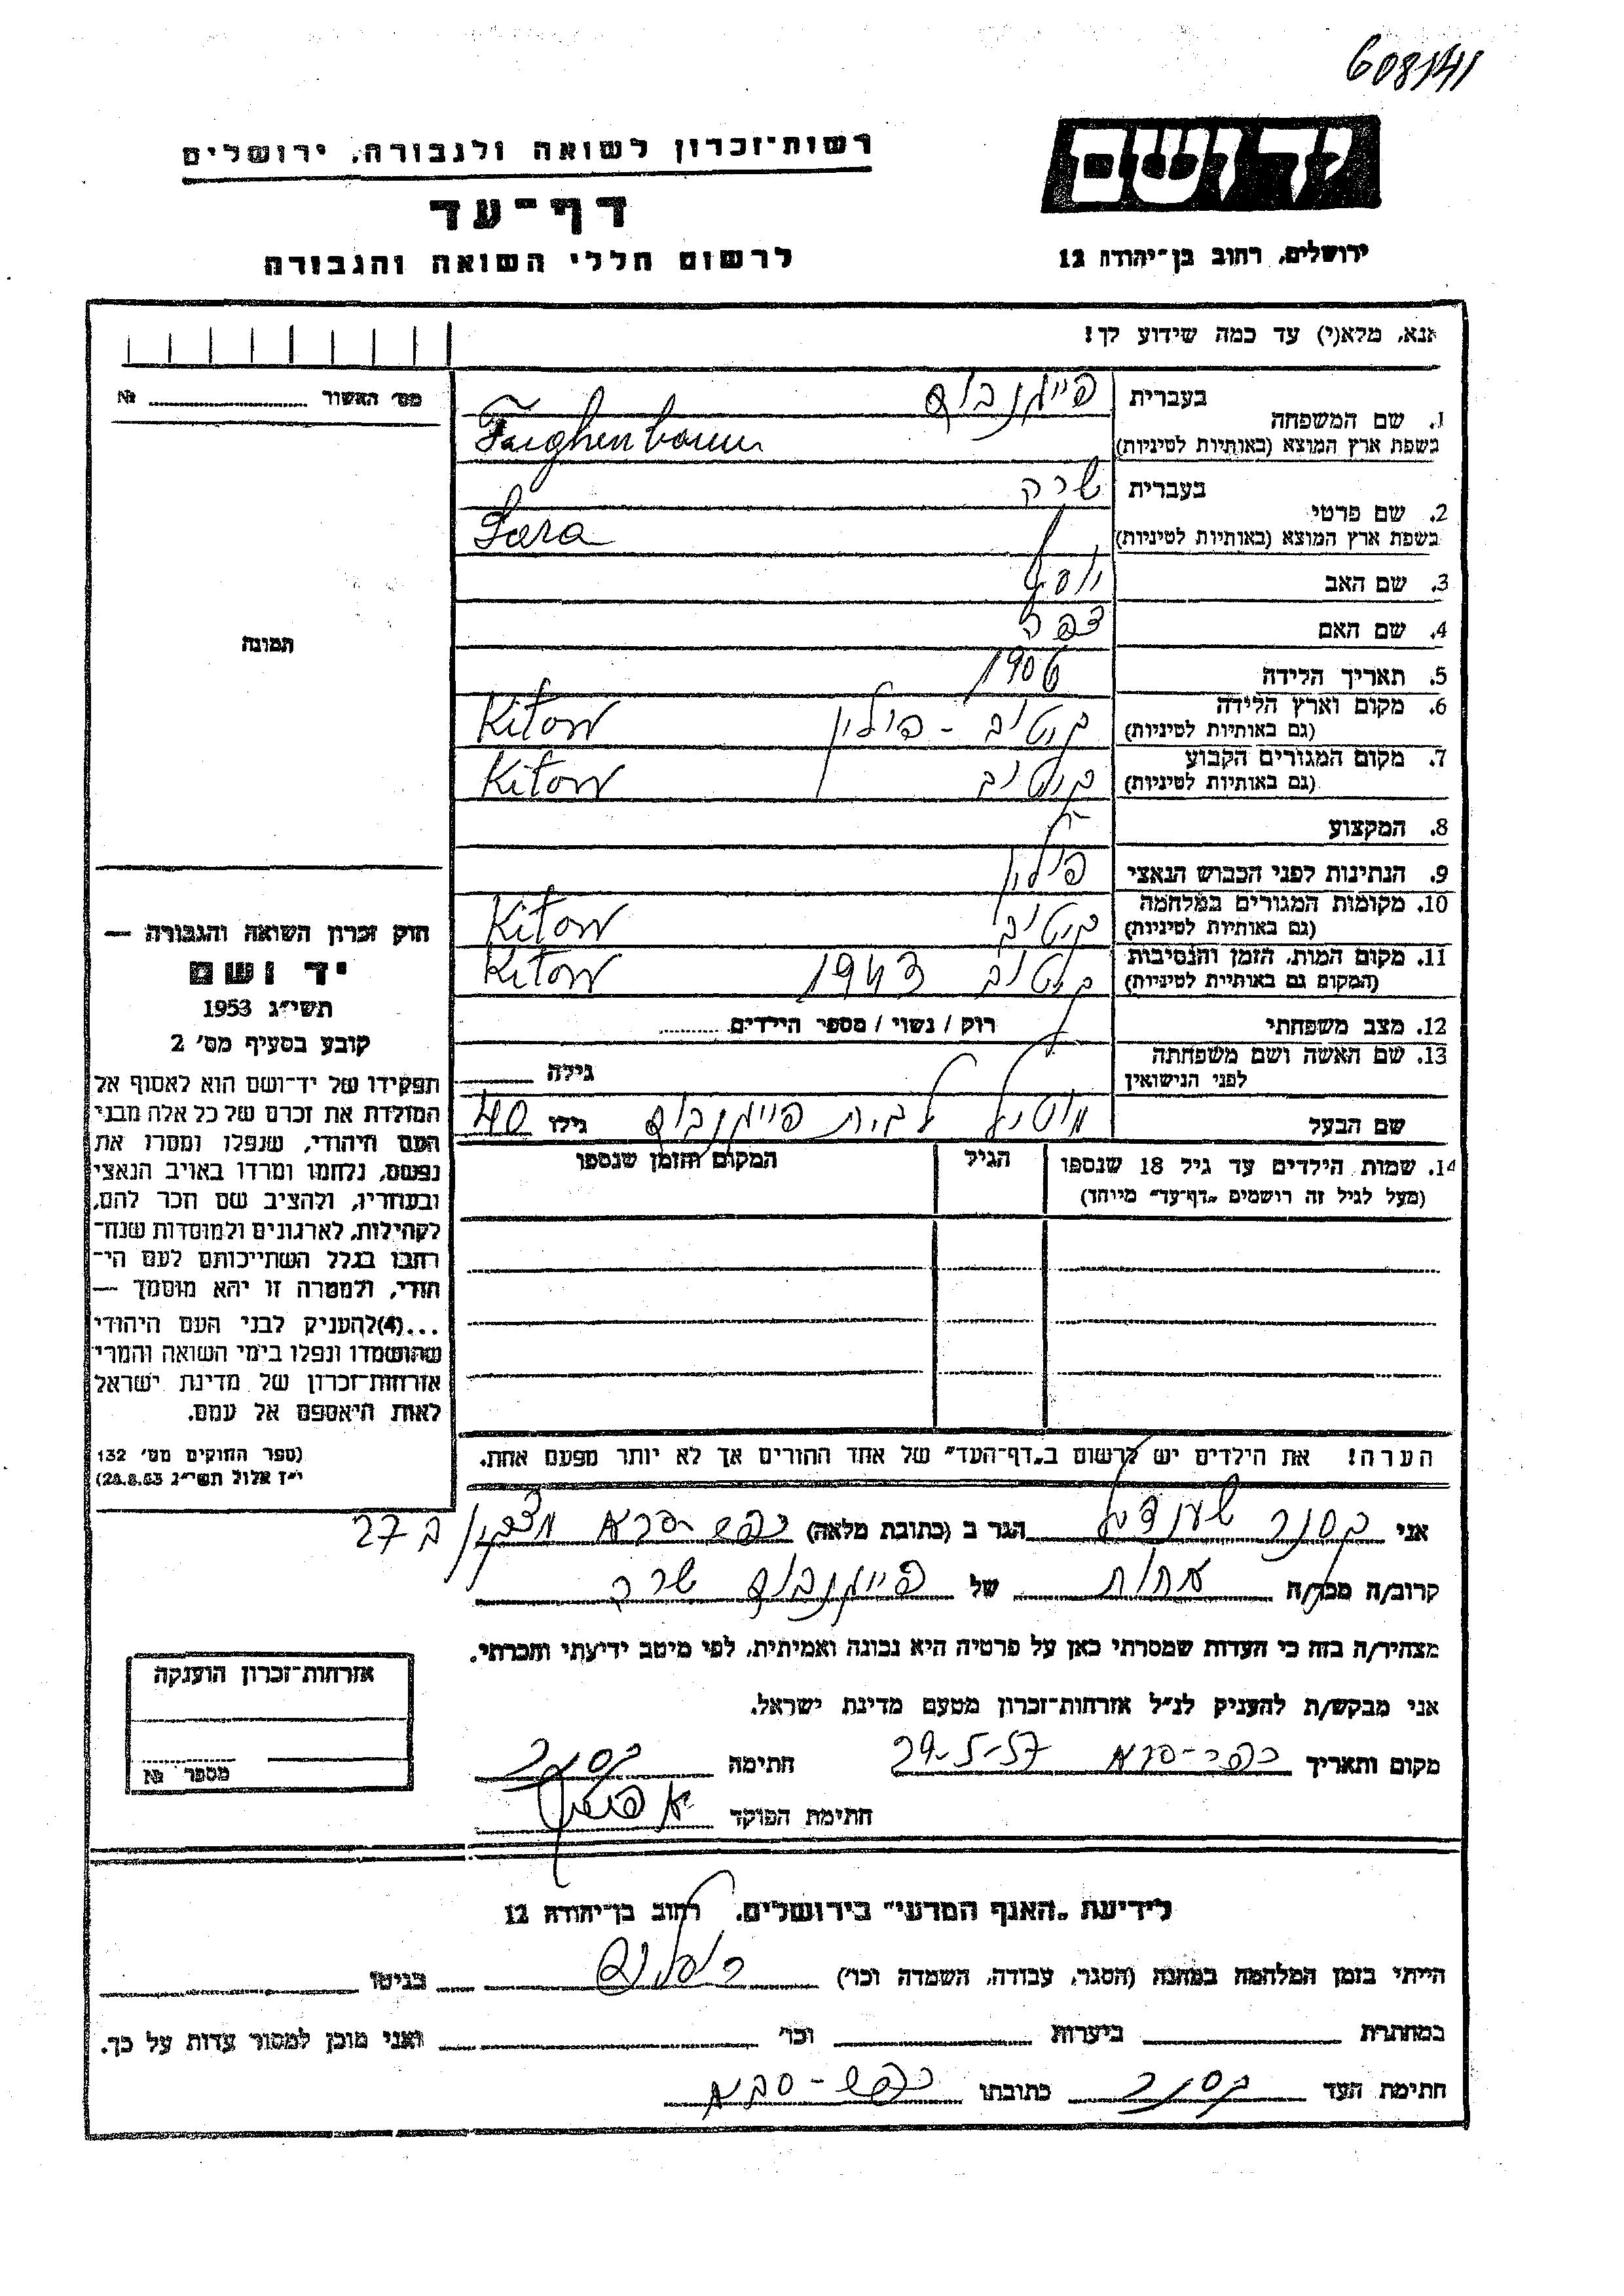 608/41
יד ושם
ירושלים, רחוב בן־יהודה 12
רשות־זכרון לשואה ולגבורה, ירושלים
דף־עד
לרשום חללי השואה והגבורה
אנא, מלא(י) עד כמה שידוע לך!
מס׳ האשור № ........
תמונה
1. שם המשפחה בעברית פייגנבוים
בשפת ארץ המוצא (באותיות לטיניות) Faighenbaum
2. שם פרטי בעברית שרה
בשפת ארץ המוצא (באותיות לטיניות) Sara
3. שם האב יוסף
4. שם האם
5. תאריך הלידה 1906
6. מקום וארץ הלידה (גם באותיות לטיניות) קיטוב - פולין Kitow
7. מקום המגורים הקבוע (גם באותיות לטיניות) קיטוב Kitow
8. המקצוע
9. הנתינות לפני הכבוש הנאצי פולין
10. מקומות המגורים במלחמה (גם באותיות לטיניות) קיטוב Kitow
11. מקום המות, הזמן והנסיבות (המקום גם באותיות לטיניות) קיטוב 1943 Kitow
12. מצב משפחתי רוק / נשוי / מספר הילדים ........
13. שם האשה ושם משפחתה לפני הנישואין גילה
שם הבעל לבית פייגנבוים גילו 40
14. שמות הילדים עד גיל 18 שנספו הגיל המקום והזמן שנספו
(מעל לגיל זה רושמים „דף־עד״ מייוחד)
הערה! את הילדים יש לרשום ב„דף־העד״ של אחד ההורים אך לא יותר מפעם אחת.
חוק זכרון השואה והגבורה —
יד ושם
תשי״ג 1953
קובע בסעיף מס׳ 2
תפקידו של יד־ושם הוא לאסוף אל
המולדת את זכרם של כל אלה מבני
העם היהודי, שנפלו ומסרו את
נפשם, נלחמו ומרדו באויב הנאצי
ובעוזריו, ולהציב שם וזכר להם,
לקהילות, לארגונים ולמוסדות שנח־
רבו בגלל השתייכותם לעם הי־
הודי, ולמטרה זו יהא מוסמך —
...(4)להעניק לבני העם היהודי
שהושמדו ונפלו בימי השואה והמרי
אזרחות־זכרון של מדינת ישראל
לאות היאספם אל עמם.
(ספר החוקים מס׳ 132
י״ז אלול תשי״ג 28.8.53)
אני קסנר הגר ב (כתובת מלאה) כפר-סבא 27
קרוב/ה מכר/ה אחות של פייגנבוים שרה
מצהיר/ה בזה כי העדות שמסרתי כאן על פרטיה היא נכונה ואמיתית, לפי מיטב ידיעתי והכרתי.
אני מבקש/ת להעניק לנ״ל אזרחות־זכרון מטעם מדינת ישראל.
מקום ותאריך כפר-סבא 29-5-57 חתימה קסנר
חתימת הפוקד
אזרחות־זכרון הוענקה
מספר №
לידיעת „האגף המדעי״ בירושלים, רחוב בן־יהודה 12
הייתי בזמן המלחמה במחנה (הסגר, עבודה, השמדה וכו׳) בגיטו
במחתרת ביערות וכו׳ ואני מוכן למסור עדות על כך.
חתימת העד קסנר כתובתו כפר-סבא